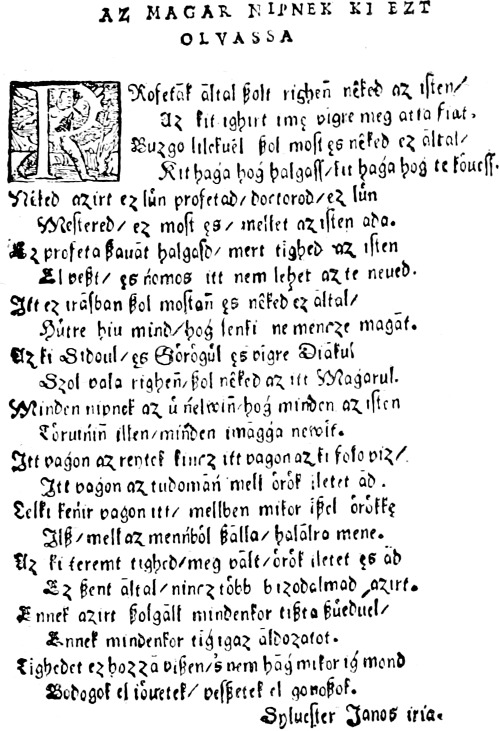 AZ MAGAR NIPNEK KI EZT
OLVASSA
PRofetāk āltal ßolt righeñ nēked az iſten/
Az kit ighirt imę vigre meg atta fiat.
Buzgo lilekuēl ßol moſt ęs nēked ez āltal/
Kit haǵa hoǵ halgaſſ/kit haǵa hoǵ te kȯueſſ.
Nēked azirt ez lün profetad/doctorod/ez lün
Meſtered/ ez moſt ęs/ mellet az iſten ada.
Ez profeta ßauāt halgaſd/ mert tighed az iſten
El veßt/ ęs ńomos itt nem lehet az te neued.
Itt ez irāſban ßol moſtañ ęs nēked ez āltal/
Hütre hiu mind/hoǵ ſenki ne mencze magāt.
Az ki Sidoul/ęs Gȯrȯgül ęs vigre Diākul
Szol vala righeñ/ßol nēked az itt Maǵarul.
Minden nipnek az ü ńelwiñ/hoǵ minden az iſten
Tȯruińiñ illen/miñden imāǵǵa newit.
Itt vaǵon az reytek kincz itt vagon az ki foło viz/
Itt vaǵon az tudomāń melt ȯrȯk iletet ād.
Lelki keńir vagon itt/ mellben mikor ißel ȯrȯkkę
Ilß/ mell az menńbȯl ßālla/ halālra mene.
Az ki teremt tighed/meg vālt/ȯrȯk iletet ęs ād
Ez ßent āltal/nincz tȯbb bizodalmad azirt.
Ennek azirt ßolgālt mindenkor tißta ßüeduel/
Ennek mindenkor tiǵ igaz āldozatot.
Tighedet ez hozzā vißen/'s nem hāǵ mikor iǵ mond
Bodogok el iȯuetek/ veſßetek el gonoßok.
Sylueſter Janos iria.